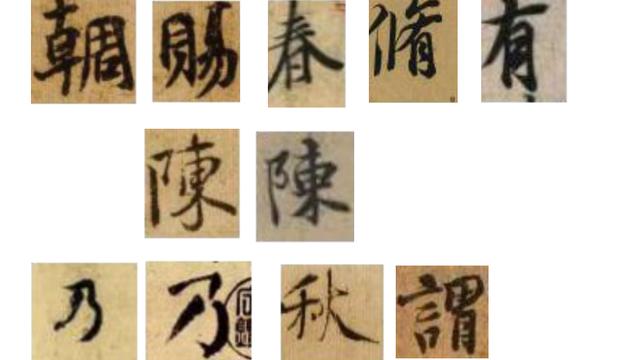 賜 春 脩 有
陳 陳
乃 乃 秋 謂